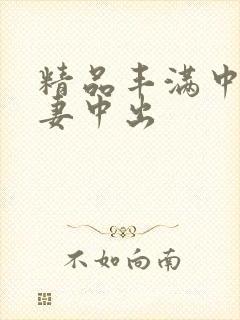 精品丰满中
妻中出
不如向南